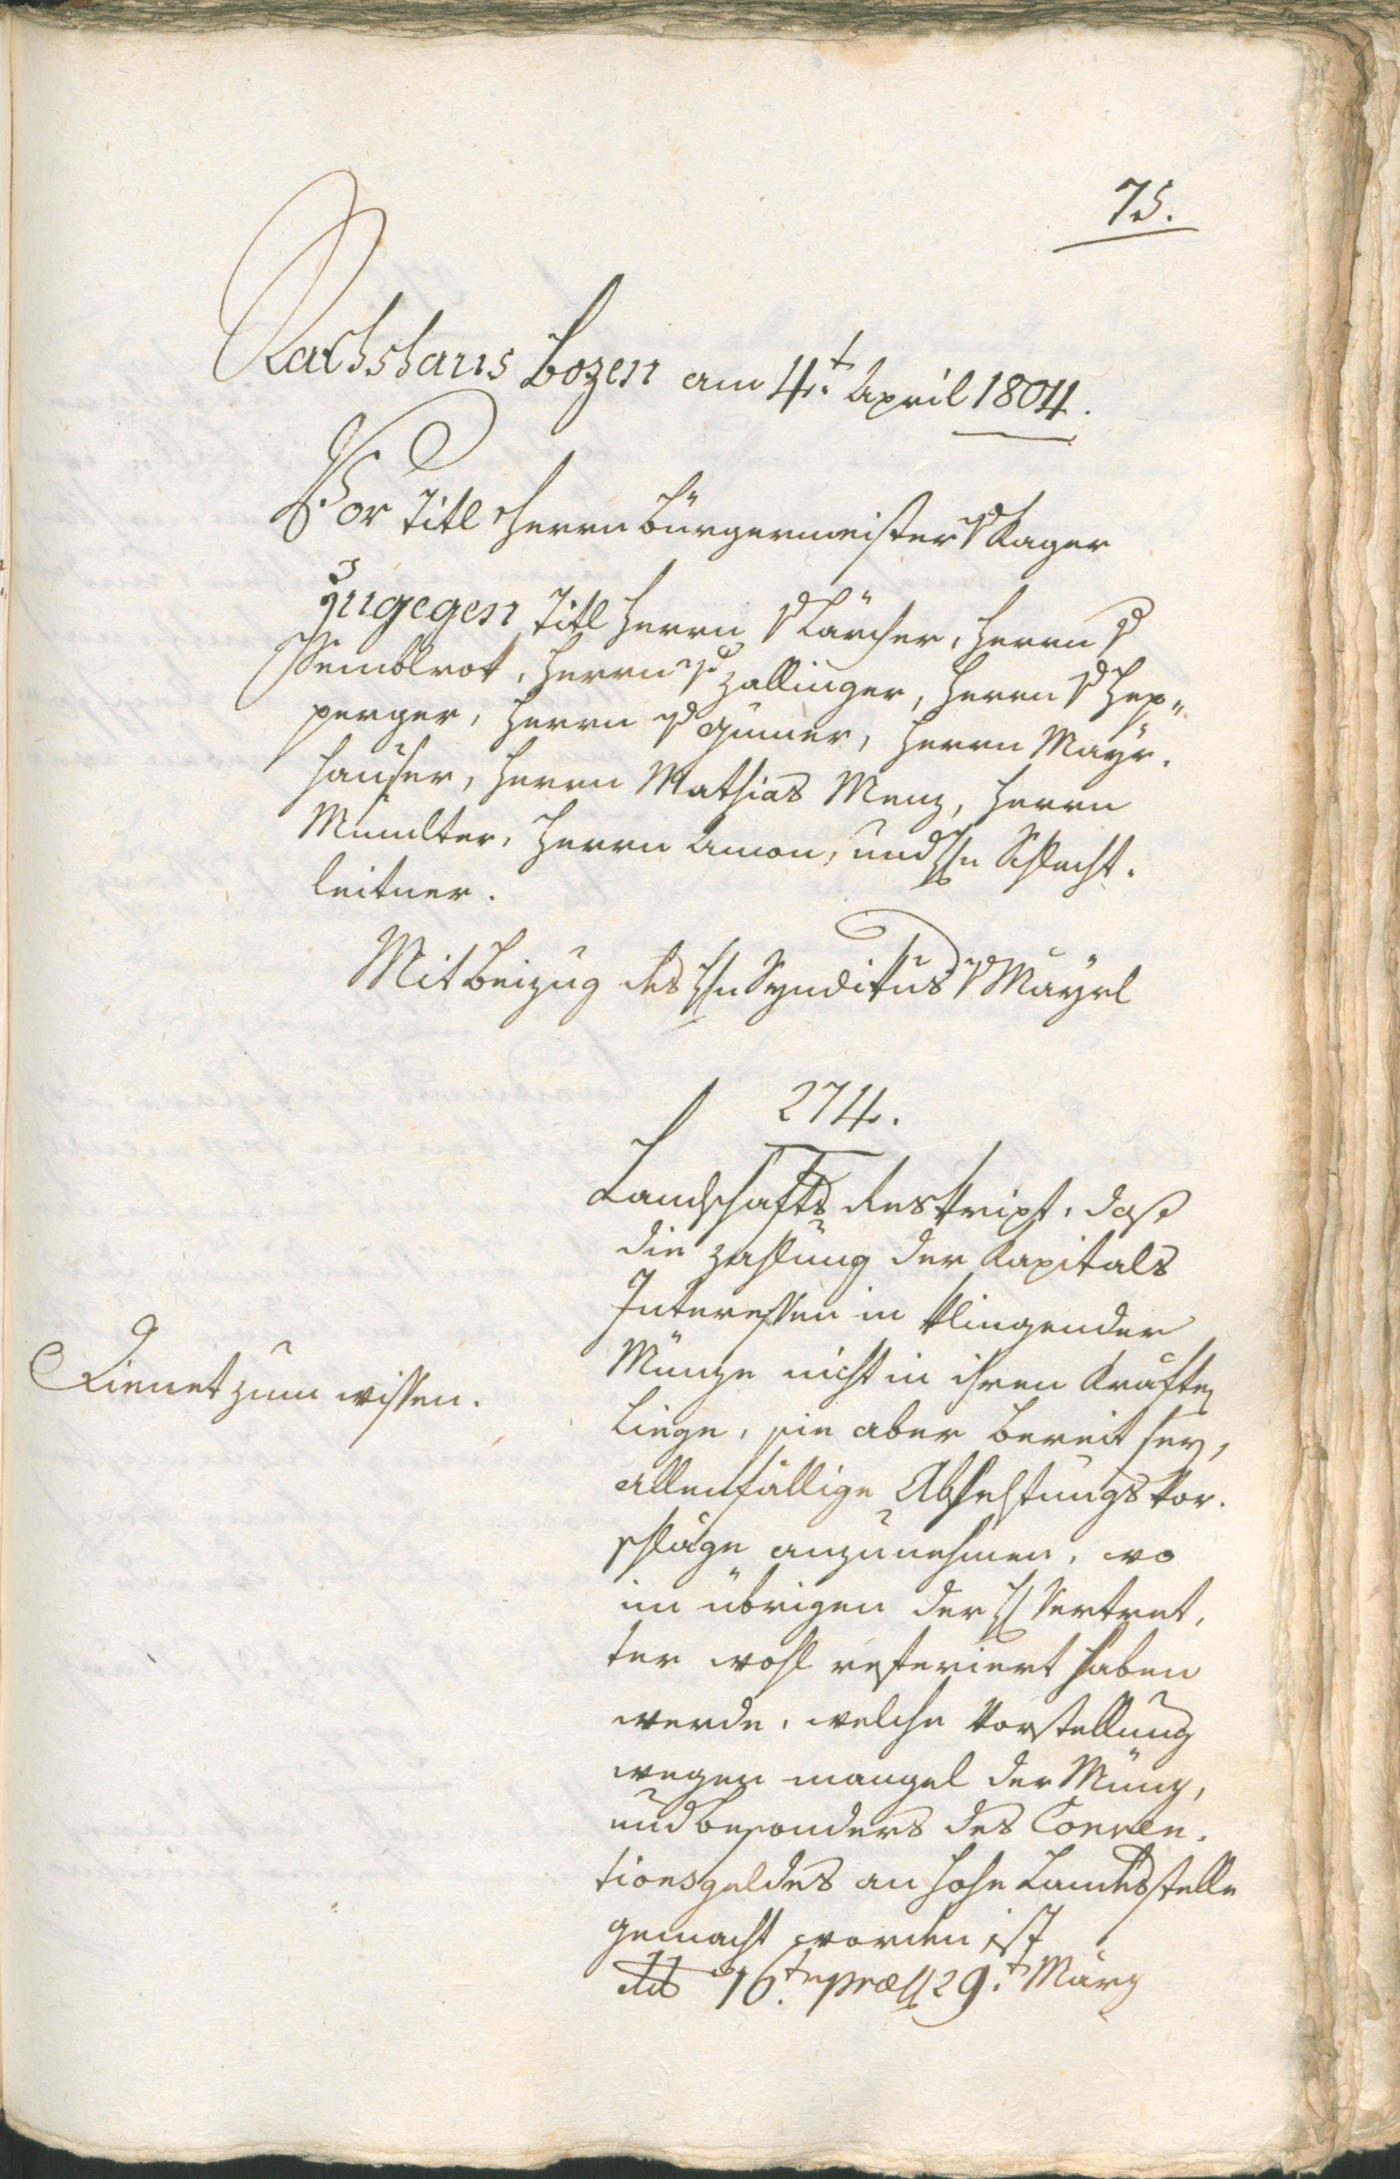 75.
Rathshaus Bozen am 4.t April 1804.
Vor Titl Herrn Bürgermeister v Kager
Zugegen Titl Herrn v Larcher, Herrn v
Remblrot, Herrn v Zallinger, Herrn v Hep„
perger, Herrn v Gumer, Herrn Mayr„
hauser, Herrn Mathias Menz, Herrn
Mumlter, Herrn Amon, und Hn Schlecht„
leitner.
Mit Beizug des Hn Syndikus v Mayrl
274.
Landschafts Reskript, daß
die Zahlung der Kapitals
Interessen in klingender
Münze nicht in ihren Kräften
liege, sie aber bereit sey,
allenfällige Abhelfungs Vor„
schläge anzunehmen, wo
im übrigen der H Vertret„
ter wohl referiert haben
werde, welche Vorstellung
wegen mangel der Münz,
und besonders des Conven„
tionsgeldes an hohe Landesstelle
gemacht worden ist
ddo 16.t præs 29.t März
Dienet zum wissen.